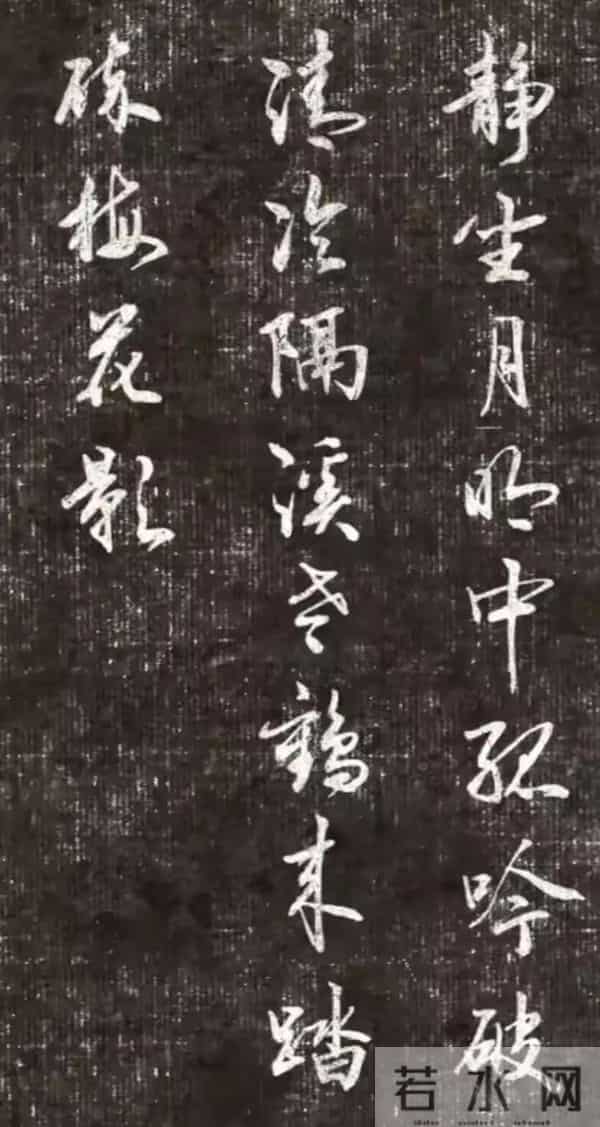 静坐月明中孤吟破
清冷隔溪老鹤来踏
碎梅花影
若水网